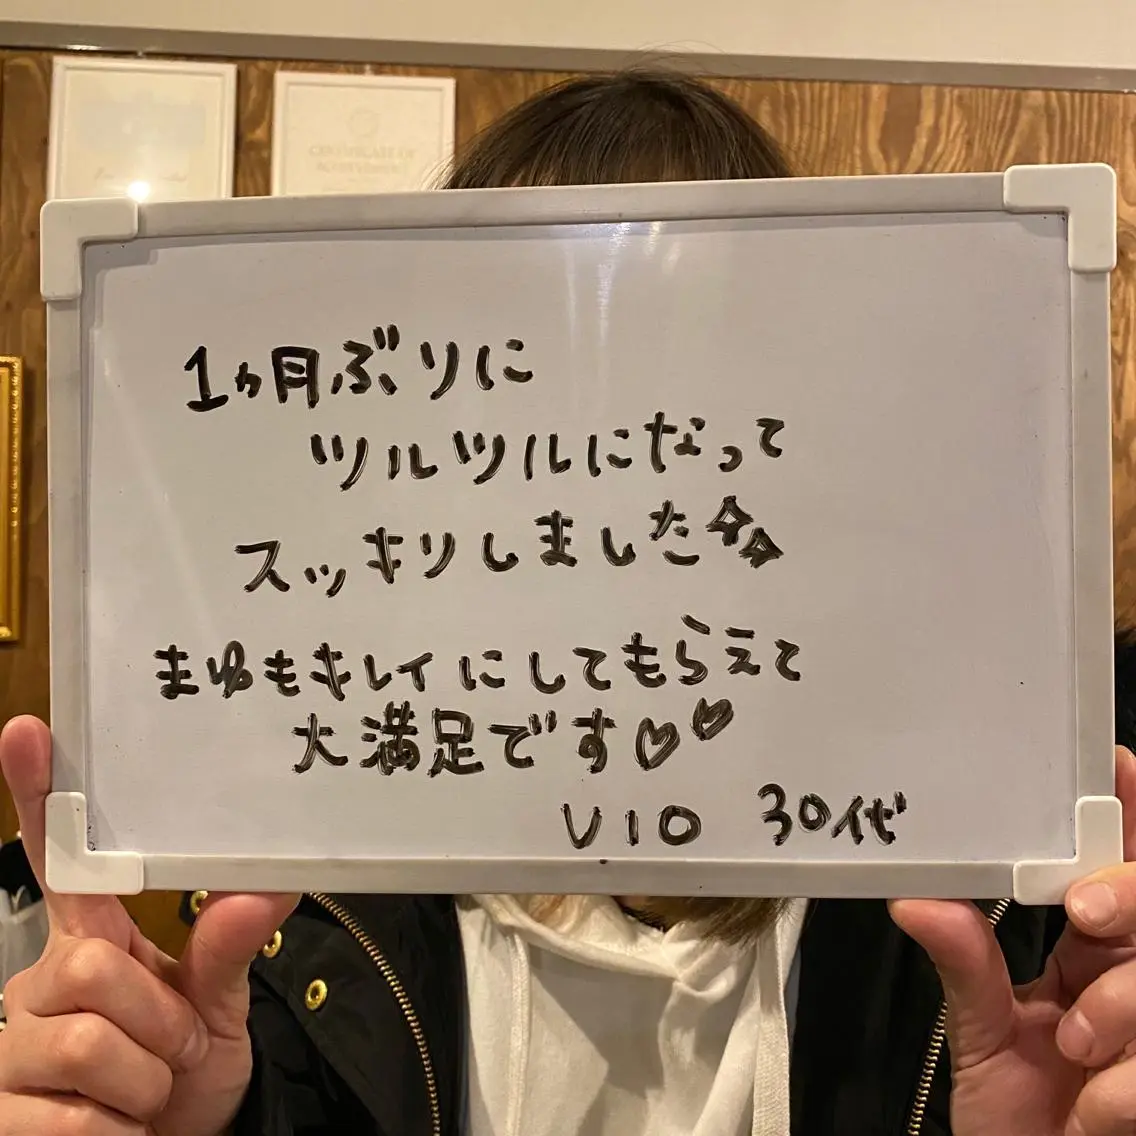 CERTIFICATE OF
ACHIEVEMENT
1ヵ月ぶりに
ツルツルになって
スッキリしました
まゆもキレイにしてもらえて
大満足です♡♡
VIO 30代